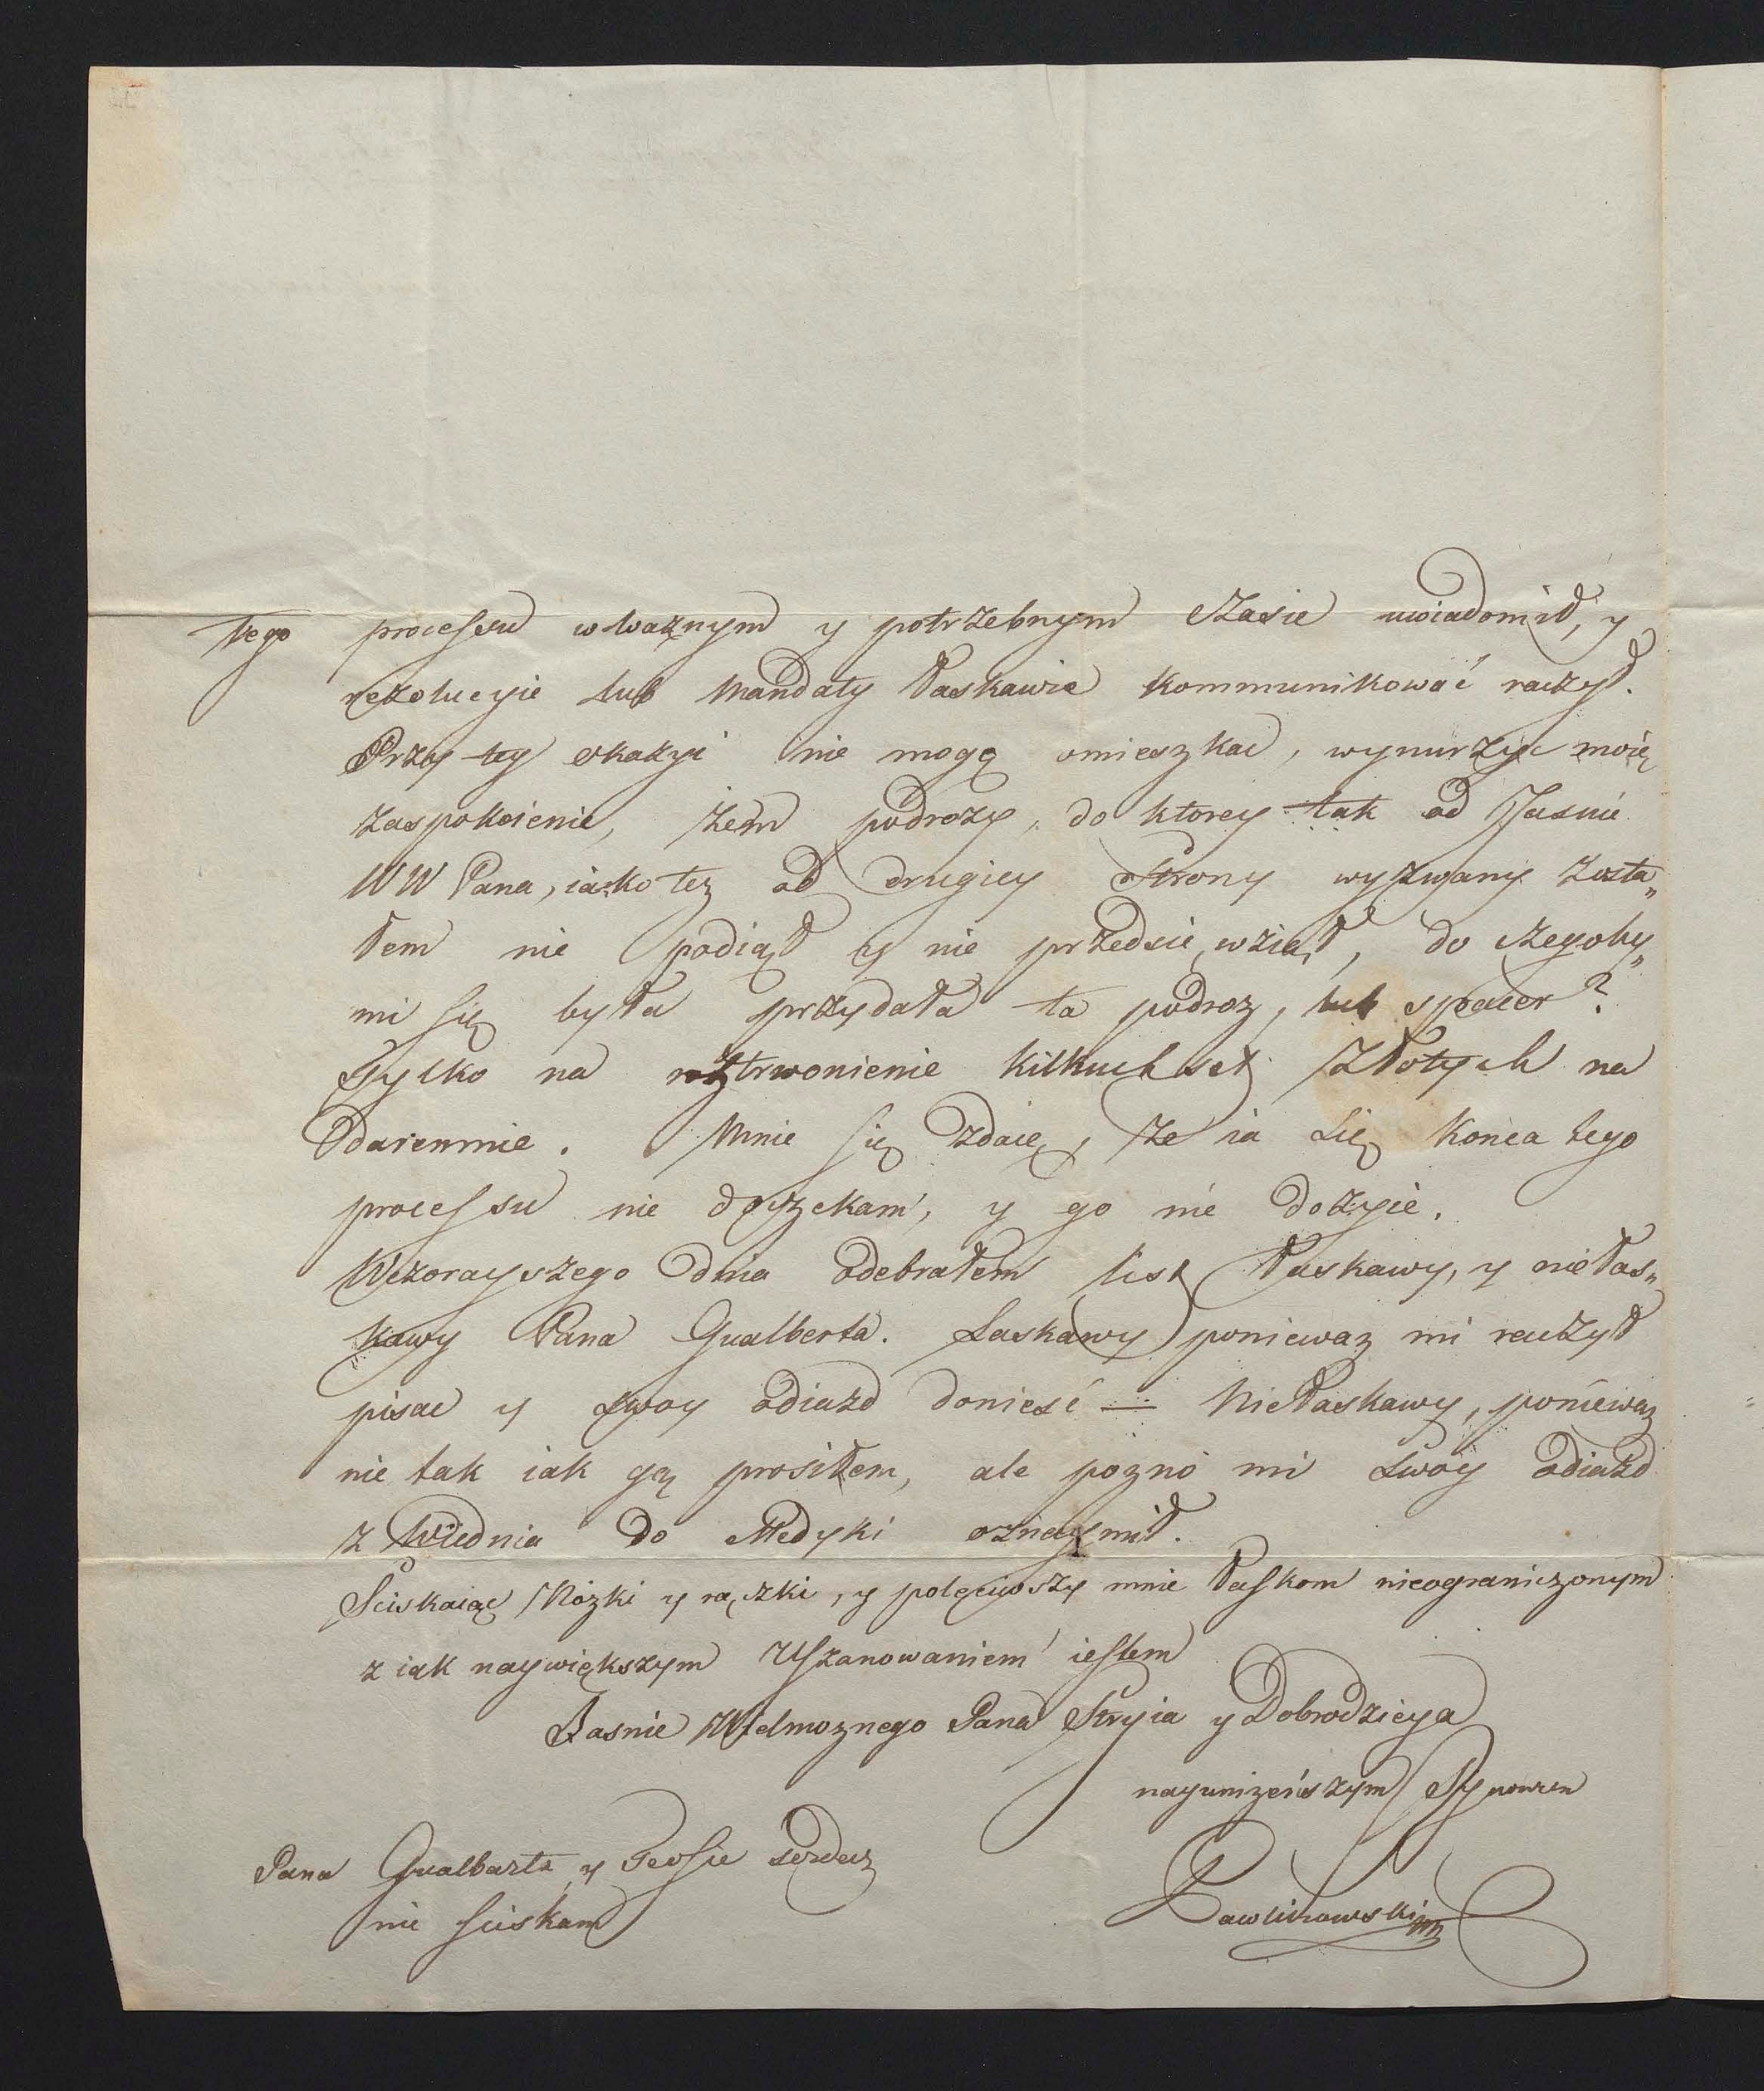 tego processu w ważnym y potrzebnym czasie uwiadomił, y
rezolucyie lub Mandaty łaskawie kommunikować raczył.
Przy tey okazyi nie mogę omieszkac, wynurzyc moię
zaspokoienie, żem podrozy, do ktorey tak od Jasnie
WW Pana, iako tez od drugiey Strony wyzwany zosta„
łem nie podiął y nie przedsięwziął, do czegoby„
mi się była przydała ta podroz, lub spacer?
Tylko na roztrwonienie kilkuchset Złotych na
daremnie. Mnie się zdaię, że ia się konca tego
processu nie doczekam, y go nie dożyie.
Wczorayszego dnia odebrałem list łaskawy, y niełas„
kawy Pana Gualberta. Laskawy poniewaz mi raczył
pisac y swoy odiazd donieść — Niełaskawy, poniewaz
nie tak iak gą prosiłem, ale pozno mi swóy odiazd
z Wiednia do Medyki oznaymił.
Sciskaiąc Nózki y rączki, y polęciwszy mnie łaskom nieograniczonym
z iak naywiększym Uszanowaniem iestem
Jasnie Wielmoznego Pana Stryia y Dobrodzieya
nayunizeńszym Synowcem
Pana Gualberta y Teosie serdecz
nie sciskam
Pawlikowskim